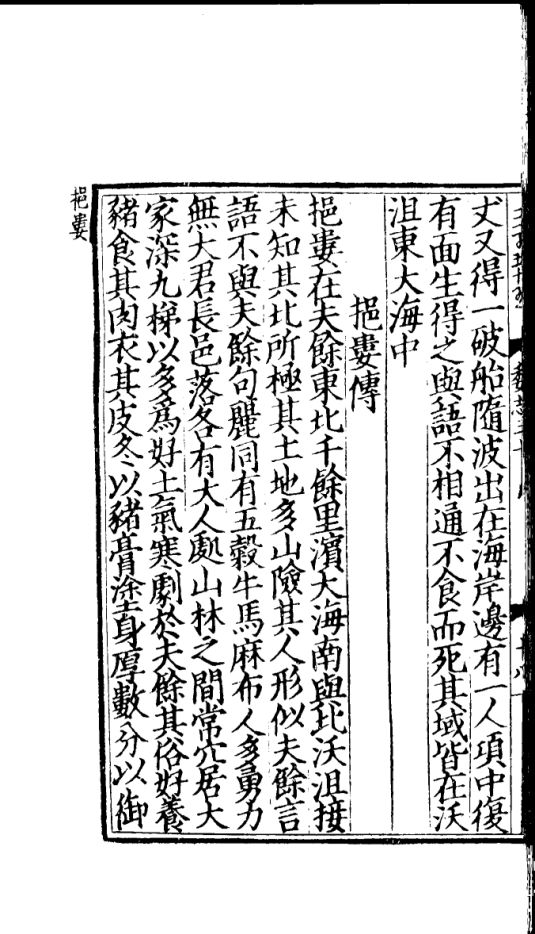 丈又得一破船隨波出在海岸邊有一人項中復
有面生得之與語不相通不食而死其域皆在沃
沮東大海中
挹婁傳
挹婁在夫餘東北千餘里濱大海南與北沃沮接
未知其北所極其土地多山險其人形似夫餘言
語不與夫餘句麗同有五穀牛馬麻布人多勇力
無大君長邑落各有大人處山林之間常穴居大
家深九梯以多爲好土氣寒劇於夫餘其俗好養
豬食其肉衣其皮冬以豬膏塗身厚數分以御
挹婁